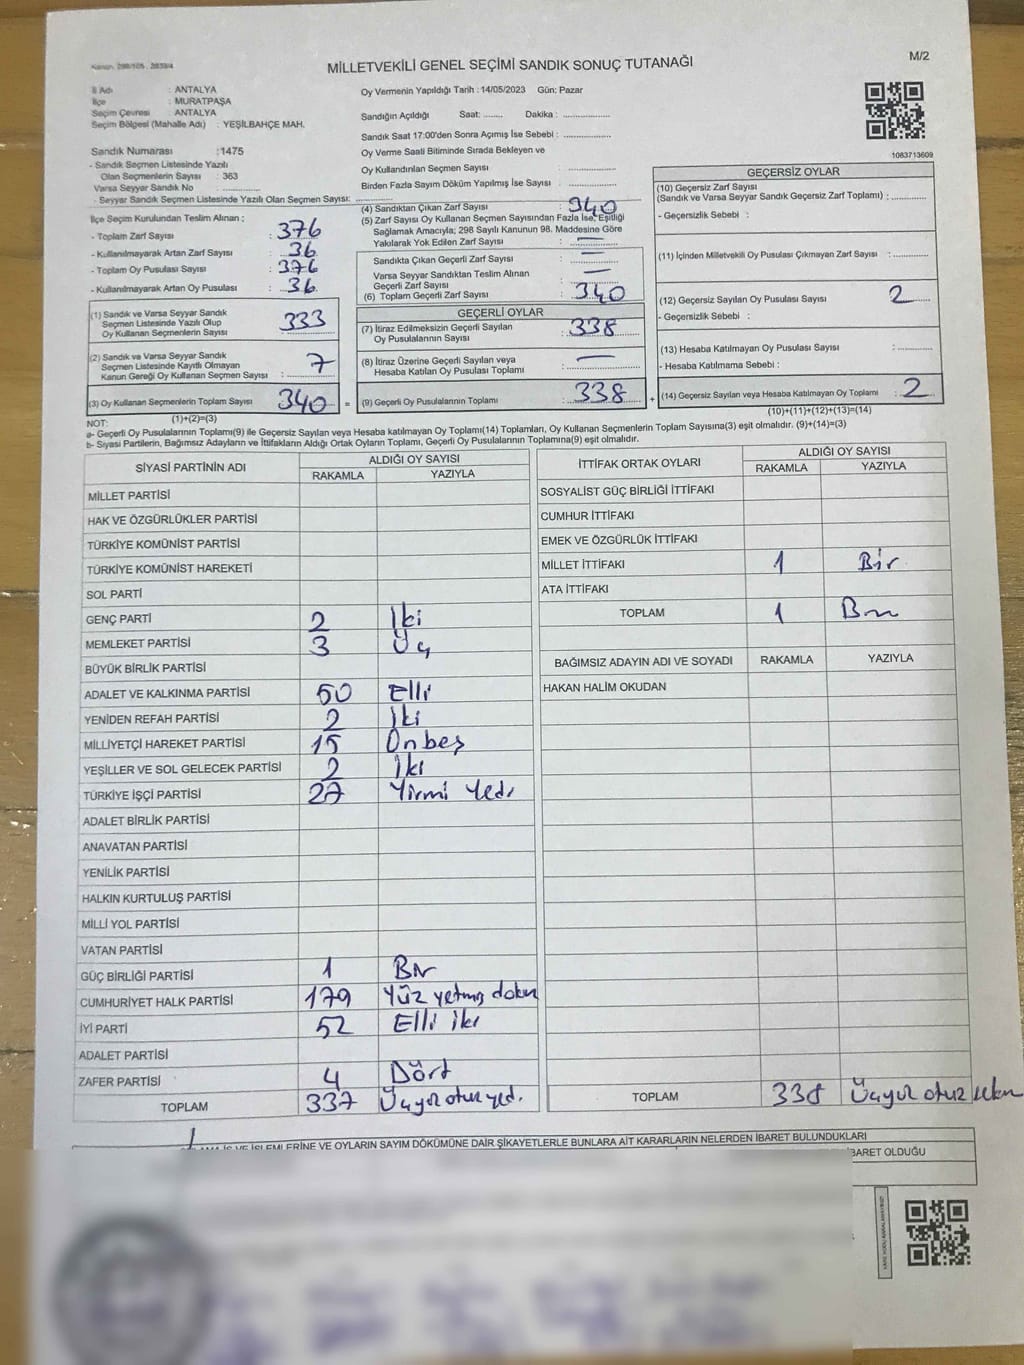 Kanun: 298/105, 2839/4
MİLLETVEKİLİ GENEL SEÇİMİ SANDIK SONUÇ TUTANAĞI
M/2
İl Adı : ANTALYA
İlçe : MURATPAŞA
Seçim Çevresi : ANTALYA
Seçim Bölgesi (Mahalle Adı) : YEŞİLBAHÇE MAH.
Sandık Numarası :1475
- Sandık Seçmen Listesinde Yazılı
Olan Seçmenlerin Sayısı : 363
Varsa Seyyar Sandık No ..............
- Seyyar Sandık Seçmen Listesinde Yazılı Olan Seçmen Sayısı: ..............
Oy Vermenin Yapıldığı Tarih : 14/05/2023 Gün: Pazar
Sandığın Açıldığı Saat: ........ Dakika : ..............
Sandık Saat 17:00'den Sonra Açımış İse Sebebi : ..............
Oy Verme Saati Bitiminde Sırada Bekleyen ve
Oy Kullandırılan Seçmen Sayısı : ..............
Birden Fazla Sayım Döküm Yapılmış İse Sayısı : ..............
1083713609
İlçe Seçim Kurulundan Teslim Alınan ;
- Toplam Zarf Sayısı : 376
- Kullanılmayarak Artan Zarf Sayısı : 36
- Toplam Oy Pusulası Sayısı : 376
- Kullanılmayarak Artan Oy Pusulası : 36
(1) Sandık ve Varsa Seyyar Sandık
Seçmen Listesinde Yazılı Olup
Oy Kullanan Seçmenlerin Sayısı : 333
(2) Sandık ve Varsa Seyyar Sandık
Seçmen Listesinde Kayıtlı Olmayan
Kanun Gereği Oy Kullanan Seçmen Sayısı : 7
(3) Oy Kullanan Seçmenlerin Toplam Sayısı : 340 =
(1)+(2)=(3)
(4) Sandıktan Çıkan Zarf Sayısı : 340
(5) Zarf Sayısı Oy Kullanan Seçmen Sayısından Fazla İse, Eşitliği
Sağlamak Amacıyla; 298 Sayılı Kanunun 98. Maddesine Göre
Yakılarak Yok Edilen Zarf Sayısı : —
Sandıkta Çıkan Geçerli Zarf Sayısı : —
Varsa Seyyar Sandıktan Teslim Alınan
Geçerli Zarf Sayısı : —
(6) Toplam Geçerli Zarf Sayısı : 340
GEÇERLİ OYLAR
(7) İtiraz Edilmeksizin Geçerli Sayılan
Oy Pusulalarının Sayısı : 338
(8) İtiraz Üzerine Geçerli Sayılan veya
Hesaba Katılan Oy Pusulası Toplamı : —
(9) Geçerli Oy Pusulalarının Toplamı : 338 +
GEÇERSİZ OYLAR
(10) Geçersiz Zarf Sayısı
(Sandık ve Varsa Seyyar Sandık Geçersiz Zarf Toplamı) : ..............
- Geçersizlik Sebebi :
(11) İçinden Milletvekili Oy Pusulası Çıkmayan Zarf Sayısı : ..............
(12) Geçersiz Sayılan Oy Pusulası Sayısı : 2
- Geçersizlik Sebebi :
(13) Hesaba Katılmayan Oy Pusulası Sayısı : ..............
- Hesaba Katılmama Sebebi :
(14) Geçersiz Sayılan veya Hesaba Katılmayan Oy Toplamı : 2
(10)+(11)+(12)+(13)=(14)
NOT:
a- Geçerli Oy Pusulalarının Toplamı(9) ile Geçersiz Sayılan veya Hesaba Katılmayan Oy Toplamı(14) Toplamları, Oy Kullanan Seçmenlerin Toplam Sayısına(3) eşit olmalıdır. (9)+(14)=(3)
b- Siyasi Partilerin, Bağımsız Adayların ve İttifakların Aldığı Ortak Oyların Toplamı, Geçerli Oy Pusulalarının Toplamına(9) eşit olmalıdır.
SİYASİ PARTİNİN ADI ALDIĞI OY SAYISI
RAKAMLA YAZIYLA
MİLLET PARTİSİ
HAK VE ÖZGÜRLÜKLER PARTİSİ
TÜRKİYE KOMÜNİST PARTİSİ
TÜRKİYE KOMÜNİST HAREKETİ
SOL PARTİ
GENÇ PARTİ 2 İki
MEMLEKET PARTİSİ 3 Üç
BÜYÜK BİRLİK PARTİSİ
ADALET VE KALKINMA PARTİSİ 50 Elli
YENİDEN REFAH PARTİSİ 2 İki
MİLLİYETÇİ HAREKET PARTİSİ 15 Onbeş
YEŞİLLER VE SOL GELECEK PARTİSİ 2 İki
TÜRKİYE İŞÇİ PARTİSİ 27 Yirmi Yedi
ADALET BİRLİK PARTİSİ
ANAVATAN PARTİSİ
YENİLİK PARTİSİ
HALKIN KURTULUŞ PARTİSİ
MİLLİ YOL PARTİSİ
VATAN PARTİSİ
GÜÇ BİRLİĞİ PARTİSİ 1 Bir
CUMHURİYET HALK PARTİSİ 179 Yüz yetmiş dokuz
İYİ PARTİ 52 Elli iki
ADALET PARTİSİ
ZAFER PARTİSİ 4 Dört
TOPLAM 337 Üçyüz otuz yedi
İTTİFAK ORTAK OYLARI ALDIĞI OY SAYISI
RAKAMLA YAZIYLA
SOSYALİST GÜÇ BİRLİĞİ İTTİFAKI
CUMHUR İTTİFAKI
EMEK VE ÖZGÜRLÜK İTTİFAKI
MİLLET İTTİFAKI 1 Bir
ATA İTTİFAKI
TOPLAM 1 Bir
BAĞIMSIZ ADAYIN ADI VE SOYADI RAKAMLA YAZIYLA
HAKAN HALİM OKUDAN
TOPLAM 338 Üçyüz otuz sekiz
İŞLEMLERİNE VE OYLARIN SAYIM DÖKÜMÜNE DAİR ŞİKAYETLERLE BUNLARA AİT KARARLARIN NELERDEN İBARET BULUNDUKLARI
İBARET OLDUĞU